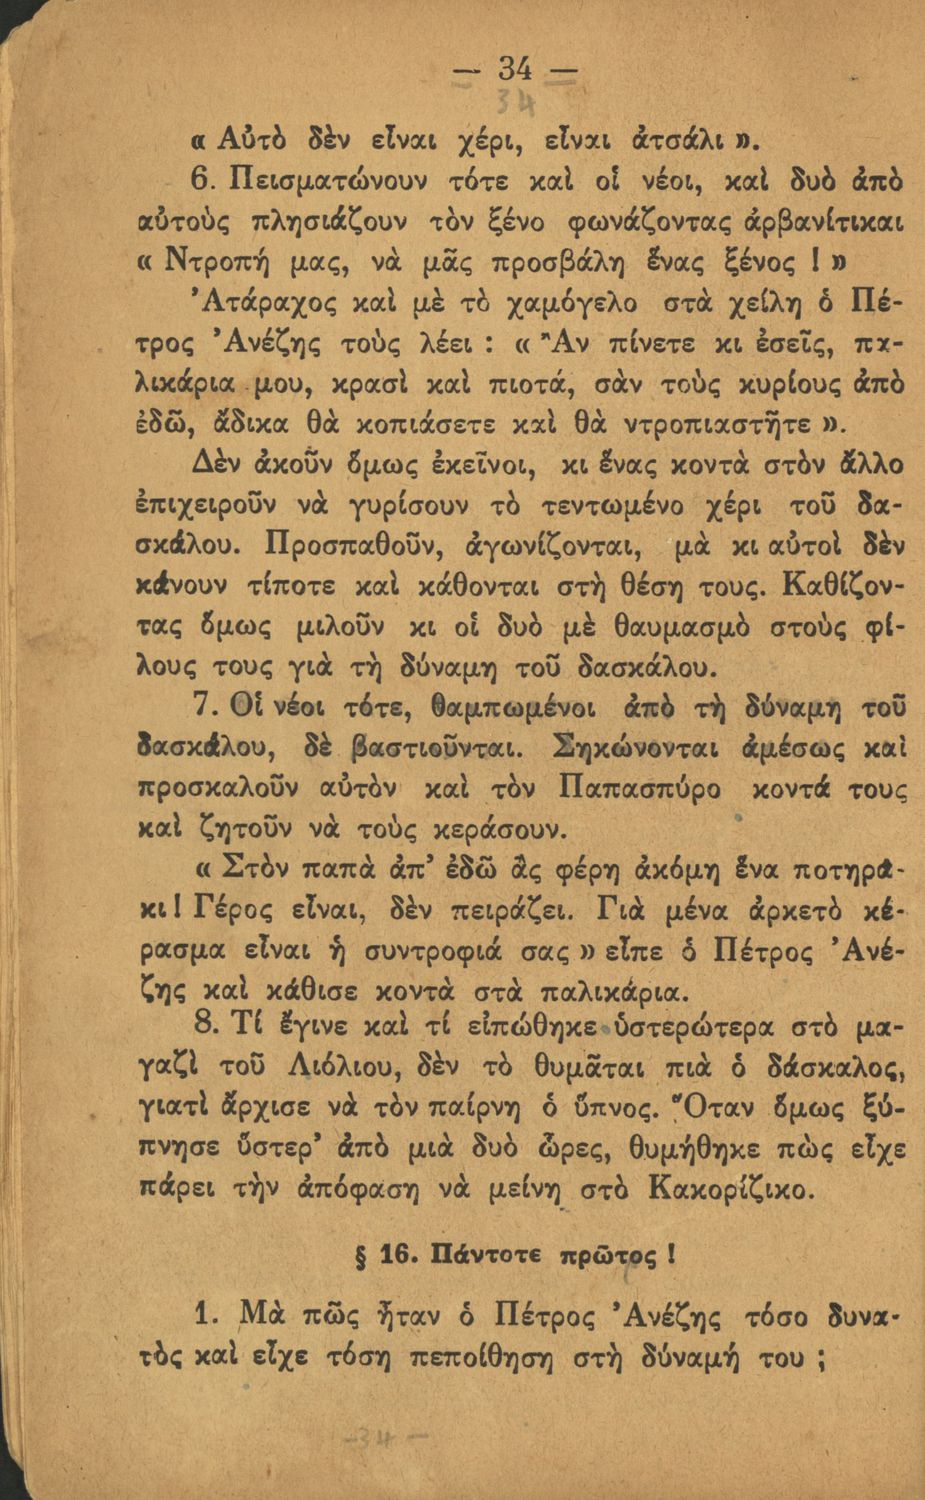 — 34 —
34
« Αὐτὸ δὲν εἶναι χέρι, εἶναι ἀτσάλι ».
6. Πεισματώνουν τότε καὶ οἱ νέοι, καὶ δυὸ ἀπὸ
αὐτοὺς πλησιάζουν τὸν ξένο φωνάζοντας ἀρβανίτικαι
« Ντροπή μας, νὰ μᾶς προσβάλη ἕνας ξένος ! »
Ἀτάραχος καὶ μὲ τὸ χαμόγελο στὰ χείλη ὁ Πέ-
τρος Ἀνέζης τοὺς λέει : « Ἂν πίνετε κι ἐσεῖς, πα-
λικάρια μου, κρασὶ καὶ πιοτά, σὰν τοὺς κυρίους ἀπὸ
ἐδῶ, ἄδικα θὰ κοπιάσετε καὶ θὰ ντροπιαστῆτε ».
Δὲν ἀκοῦν ὅμως ἐκεῖνοι, κι ἕνας κοντὰ στὸν ἄλλο
ἐπιχειροῦν νὰ γυρίσουν τὸ τεντωμένο χέρι τοῦ δα-
σκάλου. Προσπαθοῦν, ἀγωνίζονται, μὰ κι αὐτοὶ δὲν
κάνουν τίποτε καὶ κάθονται στὴ θέση τους. Καθίζον-
τας ὅμως μιλοῦν κι οἱ δυὸ μὲ θαυμασμὸ στοὺς φί-
λους τους γιὰ τὴ δύναμη τοῦ δασκάλου.
7. Οἱ νέοι τότε, θαμπωμένοι ἀπὸ τὴ δύναμη τοῦ
δασκάλου, δὲ βαστιοῦνται. Σηκώνονται ἀμέσως καὶ
προσκαλοῦν αὐτὸν καὶ τὸν Παπασπύρο κοντά τους
καὶ ζητοῦν νὰ τοὺς κεράσουν.
« Στὸν παπὰ ἀπ’ ἐδῶ ἂς φέρη ἀκόμη ἕνα ποτηρά-
κι! Γέρος εἶναι, δὲν πειράζει. Γιὰ μένα ἀρκετὸ κέ-
ρασμα εἶναι ἡ συντροφιά σας » εἶπε ὁ Πέτρος Ἀνέ-
ζης καὶ κάθισε κοντὰ στὰ παλικάρια.
8. Τί ἔγινε καὶ τί εἰπώθηκε ὑστερώτερα στὸ μα-
γαζὶ τοῦ Λιόλιου, δὲν τὸ θυμᾶται πιὰ ὁ δάσκαλος,
γιατὶ ἄρχισε νὰ τὸν παίρνη ὁ ὕπνος. Ὅταν ὅμως ξύ-
πνησε ὕστερ’ ἀπὸ μιὰ δυὸ ὧρες, θυμήθηκε πὼς εἶχε
πάρει τὴν ἀπόφαση νὰ μείνη στὸ Κακορίζικο.
§ 16. Πάντοτε πρῶτος !
1. Μὰ πῶς ἦταν ὁ Πέτρος Ἀνέζης τόσο δυνα-
τὸς καὶ εἶχε τόση πεποίθηση στὴ δύναμή του ;
-34-